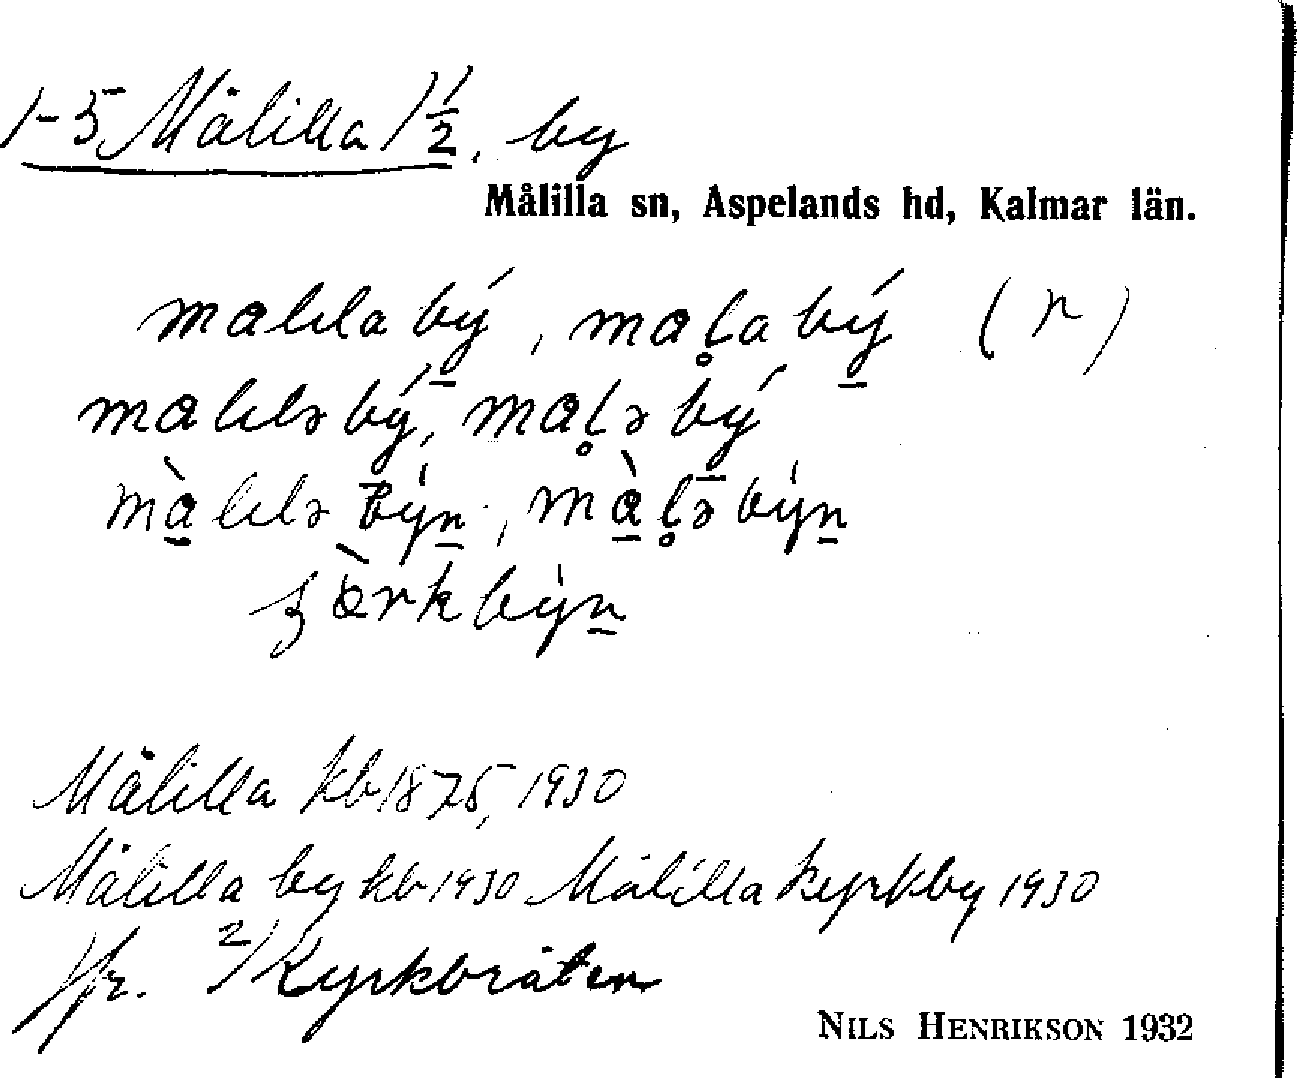 1-5 Målilla 1 1/2, by
Målilla sn, Aspelands hd, Kalmar län.
malıla bý, mal̥a bý (r)
malılə bý, mal̥ə bý
màlılə býn, màl̥ə býn
ȝærk býn
Målilla kb 1875, 1930
Målilla by kb 1930 Målilla kyrkby 1930
Jfr. 2) Kyrkbråten
NILS HENRIKSON 1932